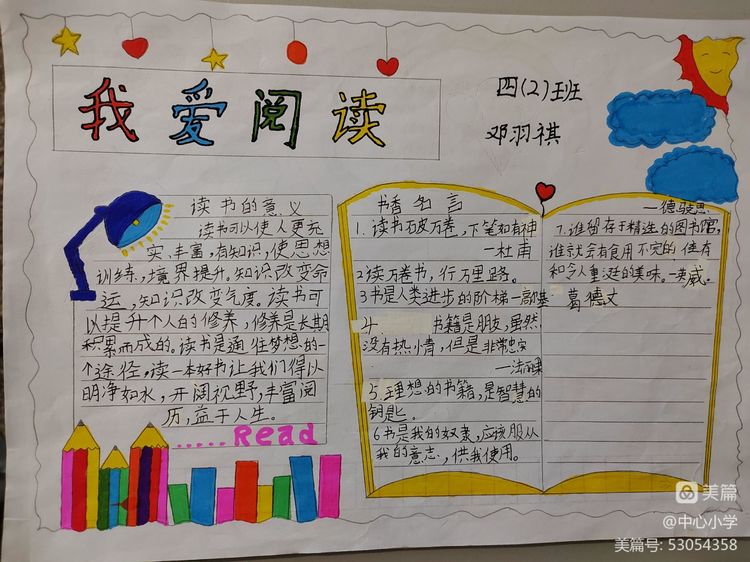 我爱阅读
四(2)班
邓羽祺
读书的意义
读书可以使人更充
实、丰富,有知识,使思想
训练,境界提升,知识改变命
运,知识改变气度。读书可
以提升个人的修养,修养是长期
积累而成的。读书是通往梦想的一
个途径,读一本好书让我们得以
明净如水,开阔视野,丰富阅
历,益于人生。
.....Read
书香名言
1.读书破万卷,下笔如有神
—杜甫
2读万卷书,行万里路。
3书是人类进步的阶梯—高尔基
4. 书籍是朋友,虽然
没有热情,但是非常忠实
5.理想的书籍,是智慧的
钥匙。
6书是我的奴隶,应该服从
我的意志,供我使用。
7.谁留存于精选的图书馆,
谁就会有食用不完的佳肴
葛德文
美篇
@中心小学
美篇号: 53054358